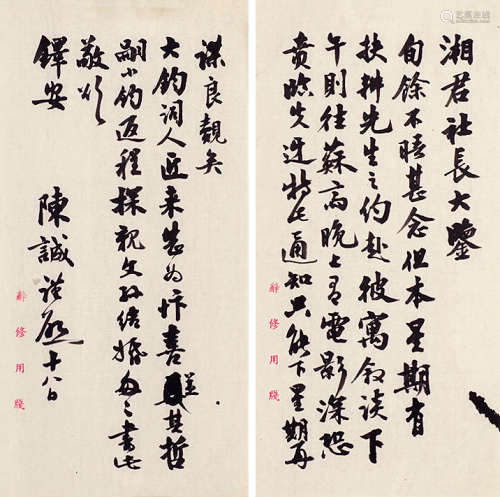 湘君社長大鑒
旬餘不晤甚念但本星期有
扶搖先生之約赴彼寓叙談下
午則往蘇高晚上有電影深恐
貴臨失迓特此通知只能下星期再
辭修用牋
謀良覿矣
大鈞詞人近来甚為忭喜蓋其哲
嗣小鈞返程探視文孫結婚匆匆書此
敬頌
鐸安
陳誠謹啟十八日
辭修用牋